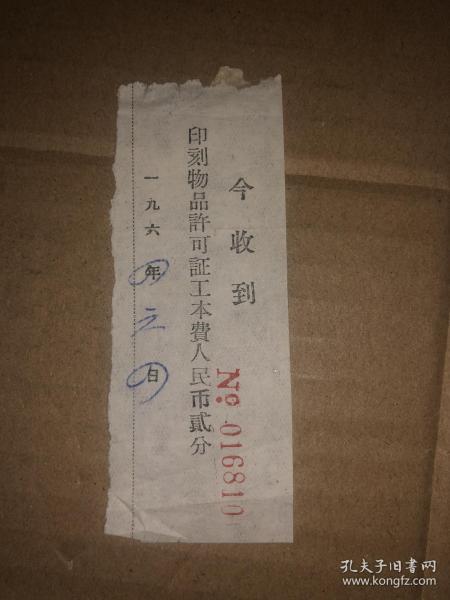 今收到
印刻物品許可証工本費人民币貳分
一九六 年 日
№ 016810
孔夫子旧书网
www.kongfz.com